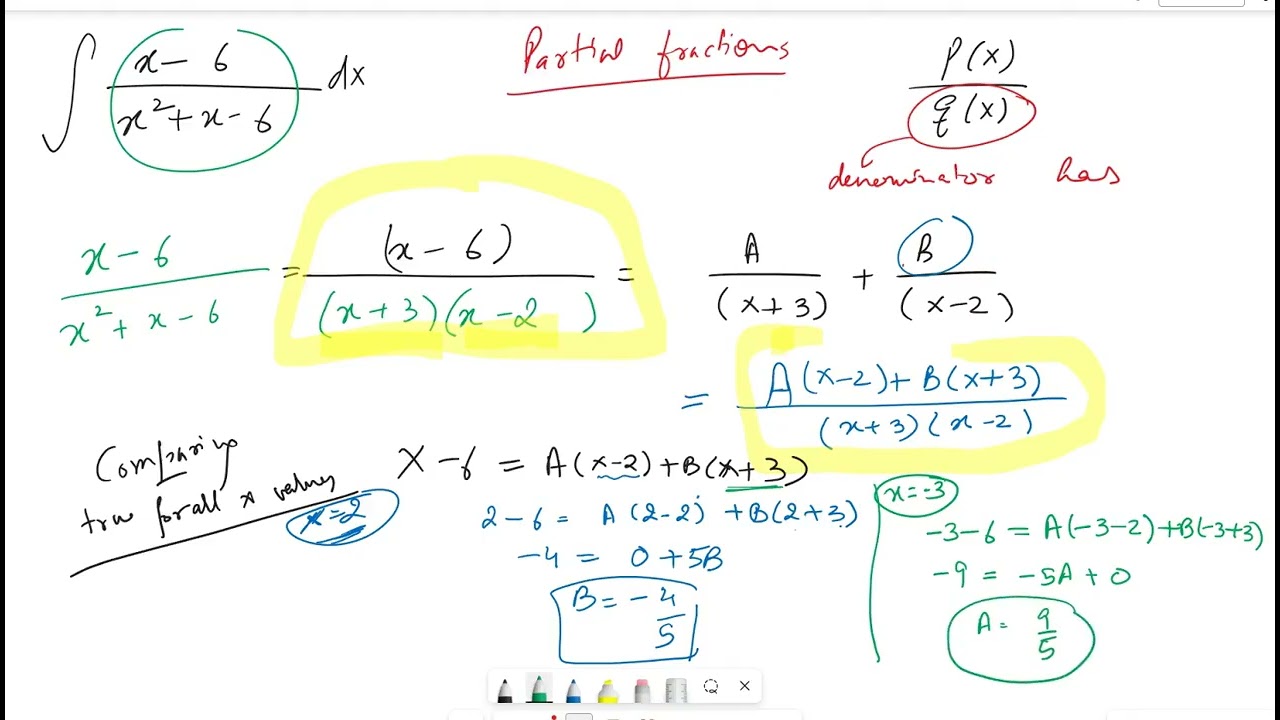 ∫ (x - 6)/(x² + x - 6) dx
Partial fractions
P(x)/q(x)
denominator has
(x - 6)/(x² + x - 6) = (x - 6)/((x + 3)(x - 2)) = A/(x + 3) + B/(x - 2)
= (A(x-2) + B(x+3))/((x+3)(x-2))
Comparing
true for all x values
x - 6 = A(x-2) + B(x+3)
x = 2
2 - 6 = A(2-2) + B(2+3)
-4 = 0 + 5B
B = -4/5
x = -3
-3 - 6 = A(-3-2) + B(-3+3)
-9 = -5A + 0
A = 9/5